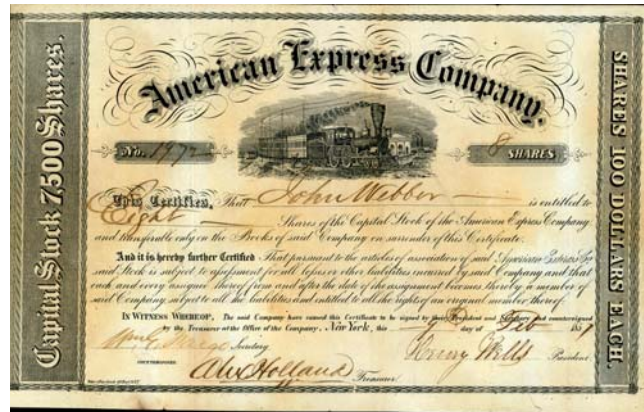 American Express Company.
Capital Stock 7,500 Shares.
SHARES 100 DOLLARS EACH.
No. 1972
8 SHARES
This Certifies, That John Webber is entitled to
Eight Shares of the Capital Stock of the American Express Company
and transferable only on the Books of said Company on surrender of this Certificate.
And it is hereby further Certified That pursuant to the articles of association of said American Express Co
said Stock is subject to assessment for all losses or other liabilities incurred by said Company and that
each and every assignee thereof from and after the date of the assignment becomes thereby a member of
said Company subject to all the liabilities and entitled to all the rights of an original member thereof.
IN WITNESS WHEREOF, The said Company have caused this Certificate to be signed by their President and Secretary and countersigned
by the Treasurer at the Office of the Company, New York, this day of Feb 185
Secretary
Henry Wells President
COUNTERSIGNED
Alex Holland Treasurer